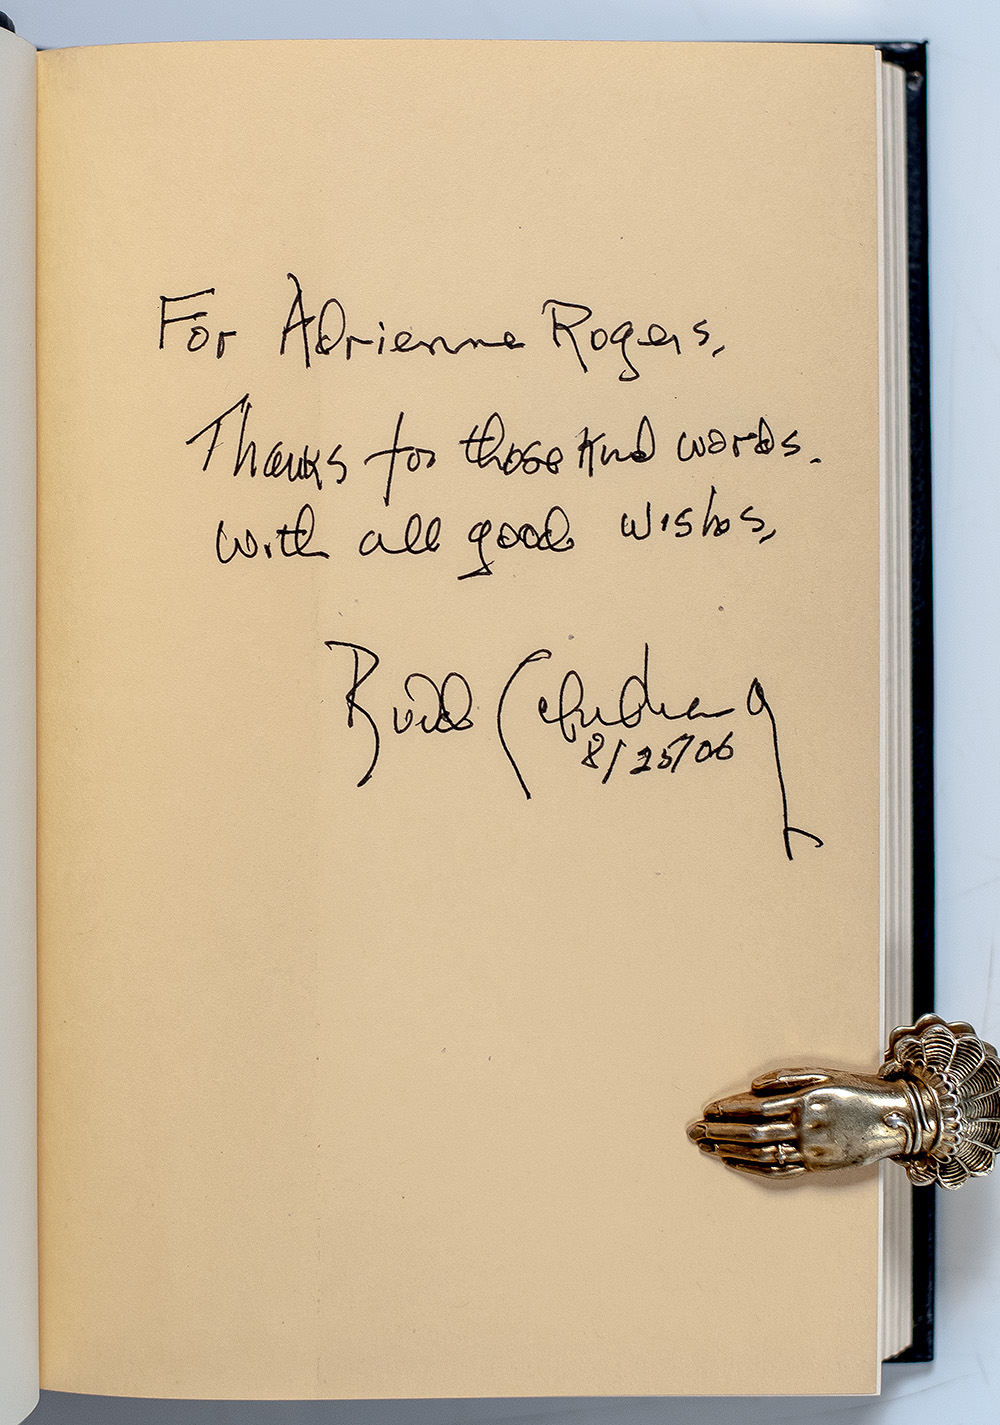 For Adrienne Rogers,
Thanks for those kind words.
With all good wishes,
Budd Schulberg
8/25/06